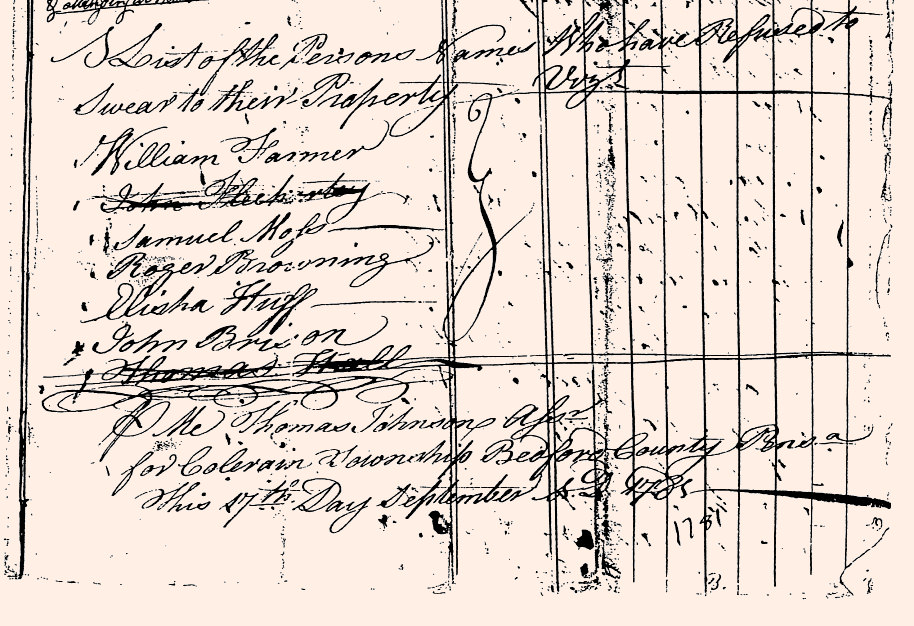 A List of the Persons Names Who have Refused to
Swear to their Property Vizt
William Farmer
John
Samuel Moss
Roger Browning
Elisha Huff
John Brixon
Thomas
P Me Thomas Johnson Assr
for Colerain Township Bedford County
This 17th Day September A D 1781
1781